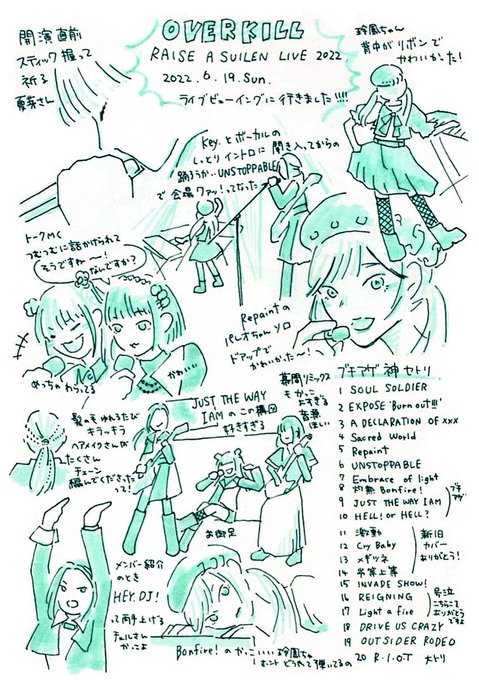 開演直前
スティック握って
祈る
夏芽さん
OVERKILL
RAISE A SUILEN LIVE 2022.
2022. 6. 19. Sun.
ライブビューイングに行きました!!!!
玲鳳ちゃん
背中がリボンで
かわいかった!
Key.とボーカルの
しっとりイントロに聞き入ってからの
踊ろうか…UNSTOPPABLE
で会場クァッ!ってなった
トークMC
つむつむに話かけられて
そうですね〜!
なんですか?
めっちゃわらってる
かわいい
Repaintの
パレオちゃんソロ
ドアップで
かわいかた〜!
髪の毛ゆれるたび
キラッキラ
ヘアメイクさんが
たくさん
チェーン
編んでくださった
って!
JUST THE WAY
I AMのこの構図
好きすぎる
お御足
幕間リミックス
もかっこ
よすぎる
音源
ほしい
ブチアゲ神セトリ
1 SOUL SOLDIER
2 EXPOSE 'Burn out!!!'
3 A DECLARATION OF ×××
4 Sacred World
5 Repaint
6 UNSTOPPABLE
7 Embrace of light
8 灼熱 Bonfire!
9 JUST THE WAY I AM
10 HELL! or HELL?
ブチアゲ
11 激動
12 Cry Baby
13 メギツネ
14 劣等上等
新旧
カバー
ありがとう!
15 INVADE SHOW!
16 REIGNING
17 Light a fire
号泣
こちらこそ
ありがとう
ですよ
18 DRIVE US CRAZY
19 OUTSIDER RODEO
20 R・I・O・T
大トリ
メンバー紹介
のとき
HEY, DJ!
って両手上げる
チュルさん
かっこよ
Bonfire!のかっこいい玲鳳ちゃん
ホントどうやって弾いてるの